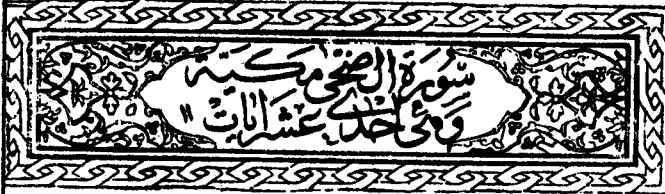 سُورَةُ الضُّحَى مَكِّيَّة
وَهِيَ احْدَى عَشَرَ ايَات ١١